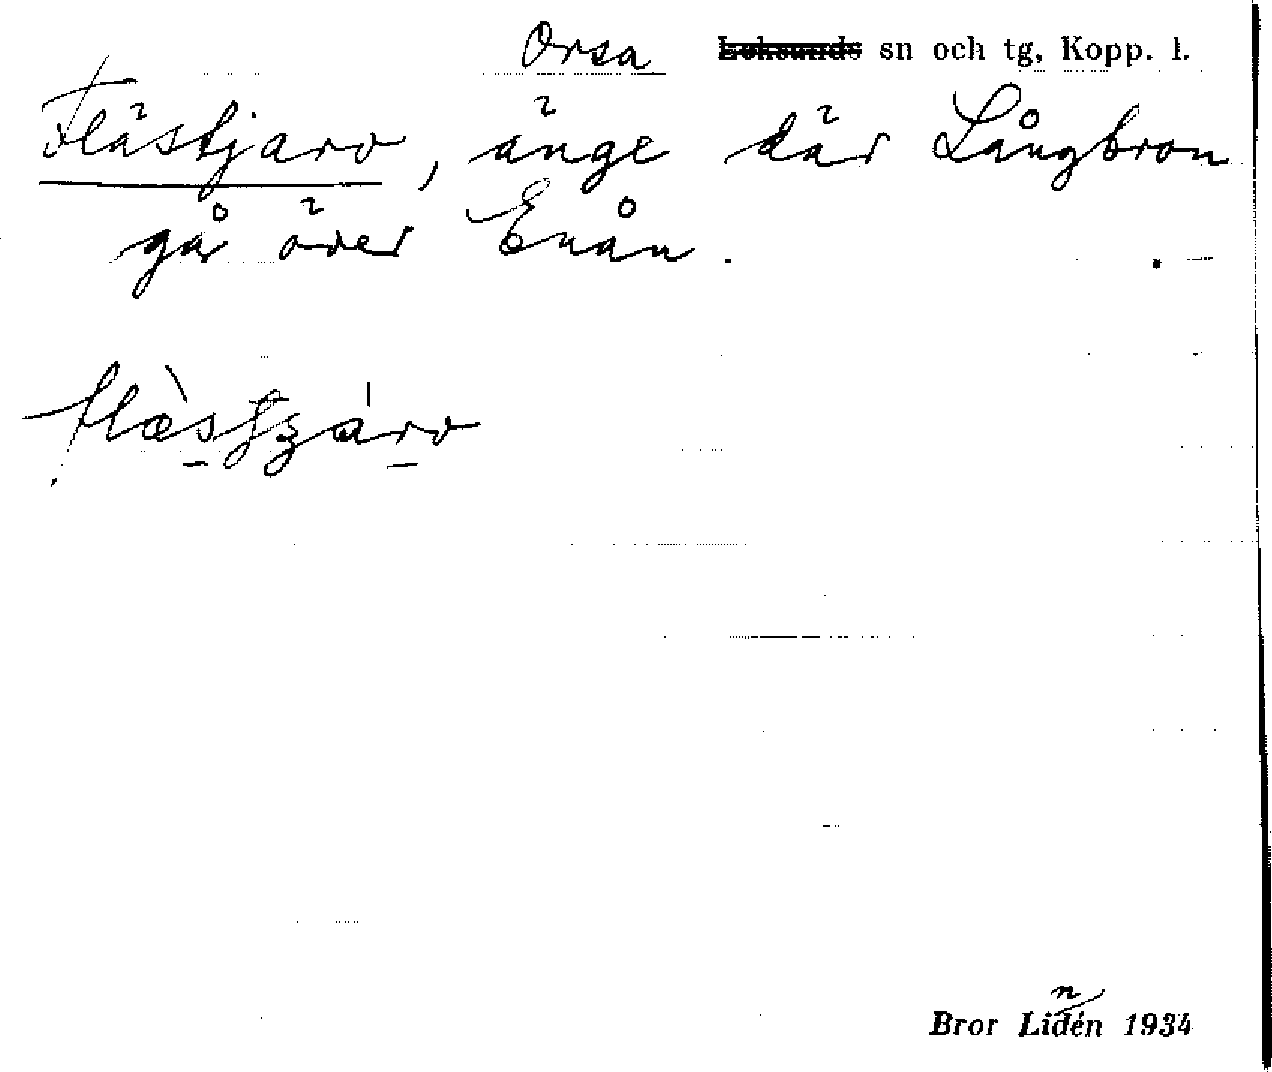 Orsa Leksands sn och tg, Kopp. l.
Flästjarv, änge där Långbron
går över Enån.
Bror Lindén 1934